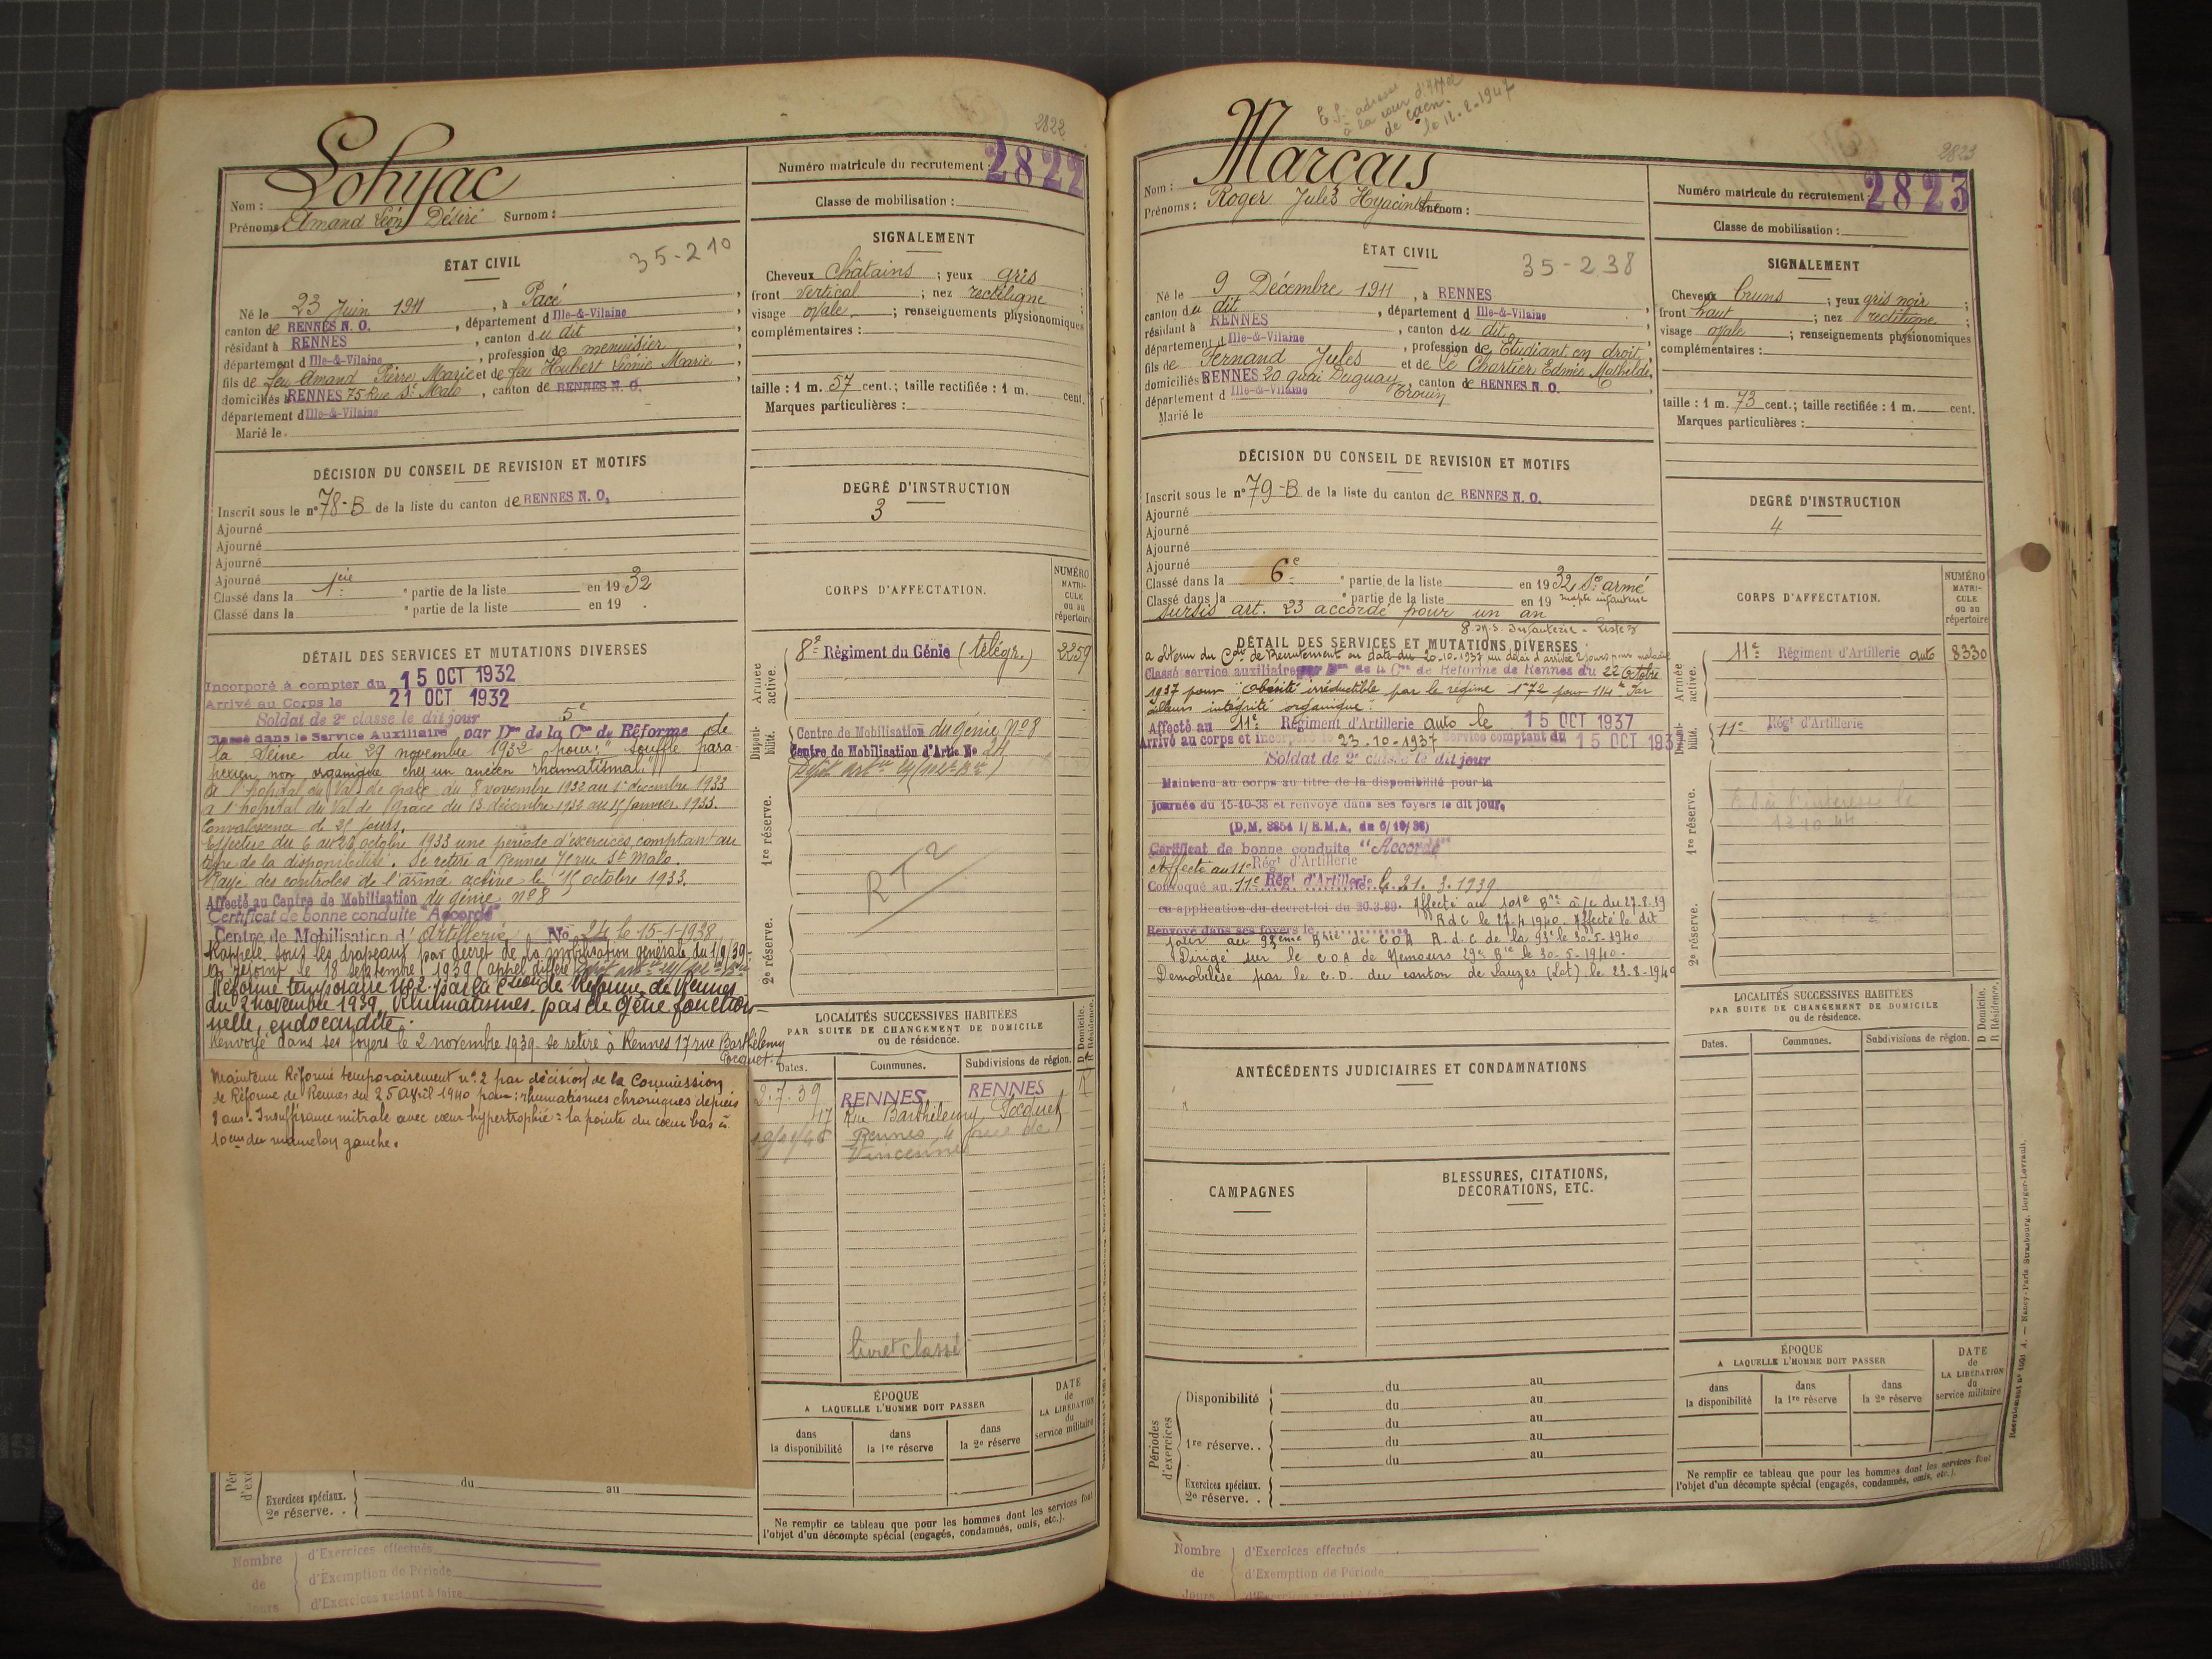 2822
Lohyac
Nom :
Prénoms Amand Léon Désiré Surnom :
Numéro matricule du recrutement : 2822
Classe de mobilisation :
ÉTAT CIVIL
35-210
Né le 23 Juin 1911, à Pacé,
canton de RENNES N. O., département d Ille-&-Vilaine,
résidant à RENNES, canton du dit,
département d Ille-&-Vilaine, profession de menuisier,
fils de feu Amand Pierre Marie et de feu Hubert Léonie Marie,
domiciliés à RENNES 75 Rue St Malo, canton de RENNES N. O.,
département d Ille-&-Vilaine
Marié le
SIGNALEMENT
Cheveux Châtains ; yeux gris ;
front vertical ; nez rectiligne ;
visage ovale ; renseignements physionomiques
complémentaires :
taille : 1 m. 57 cent.; taille rectifiée : 1 m. cent.
Marques particulières :
DÉCISION DU CONSEIL DE REVISION ET MOTIFS
Inscrit sous le n° 78-B de la liste du canton de RENNES N. O.
Ajourné
Ajourné
Ajourné
Ajourné
Classé dans la 1ère partie de la liste en 1932
Classé dans la partie de la liste en 19 .
DEGRÉ D'INSTRUCTION
3
DÉTAIL DES SERVICES ET MUTATIONS DIVERSES
Incorporé à compter du 15 OCT 1932
Arrivé au Corps le 21 OCT 1932
Soldat de 2e classe le dit jour
5e
Classé dans le Service Auxiliaire par Don de la Con de Réforme de
la Seine du 29 novembre 1932 pour : "souffle para-
pexien non organique chez un ancien rhumatismal"
à l'hopital du Val de grace du 8 novembre 1932 au 1er decembre 1933
a l'hopital du Val de Grace du 13 décembre 1932 au 15 Janvier 1933.
Convalescence de 25 jours.
Effectue du 6 au 28 octobre 1933 une période d'exercices comptant au
titre de la disponibilité. Se retire à Rennes 75 rue St Malo.
Rayé des controles de l'armée active le 15 octobre 1933.
Affecté au Centre de Mobilisation du génie n° 8
Certificat de bonne conduite "Accordé"
Centre de Mobilisation d'Artillerie No 24 le 15-1-1938
Rappelé sous les drapeaux par décret de la mobilisation générale du 1/9/39-
a rejoint le 18 septembre 1939 (appel différé
Réformé temporaire No 2 par la Cion de Réforme de Rennes
du 2 novembre 1939, Rhumatismes. pas de gêne fonction-
nelle, endocardite.
Renvoyé dans ses foyers le 2 novembre 1939- se retire à Rennes 17 rue Barthélemy
Pocquet.
Maintenu Réformé temporairement n° 2 par décision de la Commission
de Réforme de Rennes du 25 avril 1940 pour : rhumatismes chroniques depuis
8 ans. Insuffisance mitrale avec cœur hypertrophié : la pointe du cœur bas à
10 cm du mamelon gauche.
Exercices spéciaux. du au
2e réserve. .
CORPS D'AFFECTATION.
NUMÉRO MATRI- CULE ou au répertoire
Armée active.
8e Régiment du Génie (télégr.) 2259
Disponi- bilité.
Centre de Mobilisation du génie N° 8
Centre de Mobilisation d'Artie No 24
1re réserve.
RT 2
2e réserve.
LOCALITÉS SUCCESSIVES HABITÉES
PAR SUITE DE CHANGEMENT DE DOMICILE
ou de résidence.
D Domicile. R Résidence.
Dates. Communes. Subdivisions de région.
3.7.39 RENNES RENNES R
17 Rue Barthélemy Pocquet
Rennes, 4 rue de
Vincennes
livret classé
ÉPOQUE
A LAQUELLE L'HOMME DOIT PASSER
DATE de LA LIBÉRATION du service militaire
dans la disponibilité
dans la 1re réserve
dans la 2e réserve
Ne remplir ce tableau que pour les hommes dont les services font
l'objet d'un décompte spécial (engagés, condamnés, omis, etc.).
Nombre de Jours
d'Exercices effectués
d'Exemption de Période
d'Exercices restant à faire
E.S. adressé
à la cour d'appel
de Caen.
le 12-2-1947
2823
Marçais
Nom :
Prénoms : Roger Jules Hyacinthe Surnom :
Numéro matricule du recrutement 2823
Classe de mobilisation :
ÉTAT CIVIL
35-238
Né le 9 Décembre 1911, à RENNES
canton du dit, département d Ille-&-Vilaine,
résidant à RENNES, canton du dit,
département d Ille-&-Vilaine, profession de Etudiant en droit,
fils de Fernand Jules et de Le Chartier Edmée Mathilde,
domiciliés RENNES 20 quai Duguay Trouin, canton de RENNES N. O.
département d Ille-&-Vilaine
Marié le
SIGNALEMENT
Cheveux bruns ; yeux gris noir ;
front haut ; nez rectiligne ;
visage ovale ; renseignements physionomiques
complémentaires :
taille : 1 m. 73 cent.; taille rectifiée : 1 m. cent.
Marques particulières :
DÉCISION DU CONSEIL DE REVISION ET MOTIFS
Inscrit sous le n° 79-B de la liste du canton de RENNES N. O.
Ajourné
Ajourné
Ajourné
Ajourné
Classé dans la 6e partie de la liste en 1932 Sce armé
Classé dans la partie de la liste en 19 inapte infanterie
Sursis art. 23 accordé pour un an
DEGRÉ D'INSTRUCTION
4
DÉTAIL DES SERVICES ET MUTATIONS DIVERSES
a obtenu du Ct de Recrutement en date du 20-10-1937 un délai d'arrivée 2 jours pour maladie
Classé service auxiliaire par Don de la Con de Réforme de Rennes du 22 Octobre
1937 pour "obésité irréductible par le régime 1m72 pour 114 k Par
ailleurs intégrité organique."
Affecté au 11e Régiment d'Artillerie auto le 15 OCT 1937
Arrivé au corps et incorporé le 23.10-1937 Service comptant du 15 OCT 1937
Soldat de 2e classe le dit jour
Maintenu au corps au titre de la disponibilité pour la
journée du 15-10-38 et renvoyé dans ses foyers le dit jour.
(D.M. 3854 1/E.M.A. du 6/10/38)
Certificat de bonne conduite "Accordé"
Affecté au 11e Régt d'Artillerie
Convoqué au 11e Régt d'Artillerie le 21. 3.1939
en application du decret-loi du 20.3.39. Affecté au 101e Bie à/c du 27.8.39
Renvoyé dans ses foyers le RdC le 27.4.1940. Affecté le dit
jour au 93ème Brie de COA R.d.C de la 93e le 30-5-1940
Dirigé sur le COA de Nemours 29e Bie le 30-5-1940.
Démobilisé par le C.D. du canton de Lauzes (Lot) le 23-8-1940
CORPS D'AFFECTATION.
NUMÉRO MATRI- CULE ou au répertoire
Armée active.
11e Régiment d'Artillerie auto 8330
Disponi- bilité.
11e Régt d'Artillerie
1re réserve.
2e réserve.
ANTÉCÉDENTS JUDICIAIRES ET CONDAMNATIONS
CAMPAGNES
BLESSURES, CITATIONS,
DÉCORATIONS, ETC.
LOCALITÉS SUCCESSIVES HABITÉES
PAR SUITE DE CHANGEMENT DE DOMICILE
ou de résidence.
D Domicile. R Résidence.
Dates. Communes. Subdivisions de région.
Périodes d'exercices
Disponibilité du au
du au
1re réserve. . du au
du au
du au
Exercices spéciaux.
2e réserve. .
ÉPOQUE
A LAQUELLE L'HOMME DOIT PASSER
DATE de LA LIBÉRATION du service militaire
dans la disponibilité
dans la 1re réserve
dans la 2e réserve
Ne remplir ce tableau que pour les hommes dont les services font
l'objet d'un décompte spécial (engagés, condamnés, omis, etc.).
Recrutement n° 1601 A. — Nancy-Paris-Strasbourg, Berger-Levrault.
Nombre de Jours
d'Exercices effectués
d'Exemption de Période
d'Exercices restant à faire